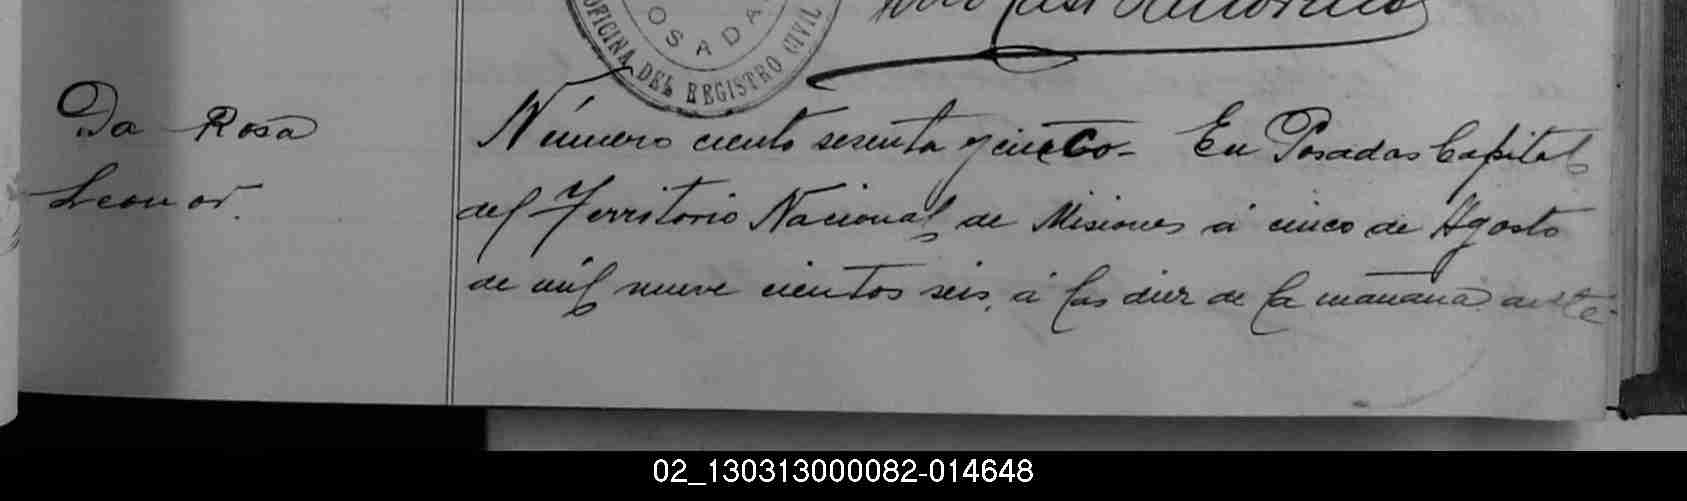 POSADAS
OFICINA DEL REGISTRO CIVIL
Da Rosa
Leonor.
Número ciento sesenta y cinco- En Posadas Capital
del Territorio Nacional de Misiones á cinco de Agosto
de mil nueve cientos seis, á las diez de la mañana ante
02_130313000082-014648